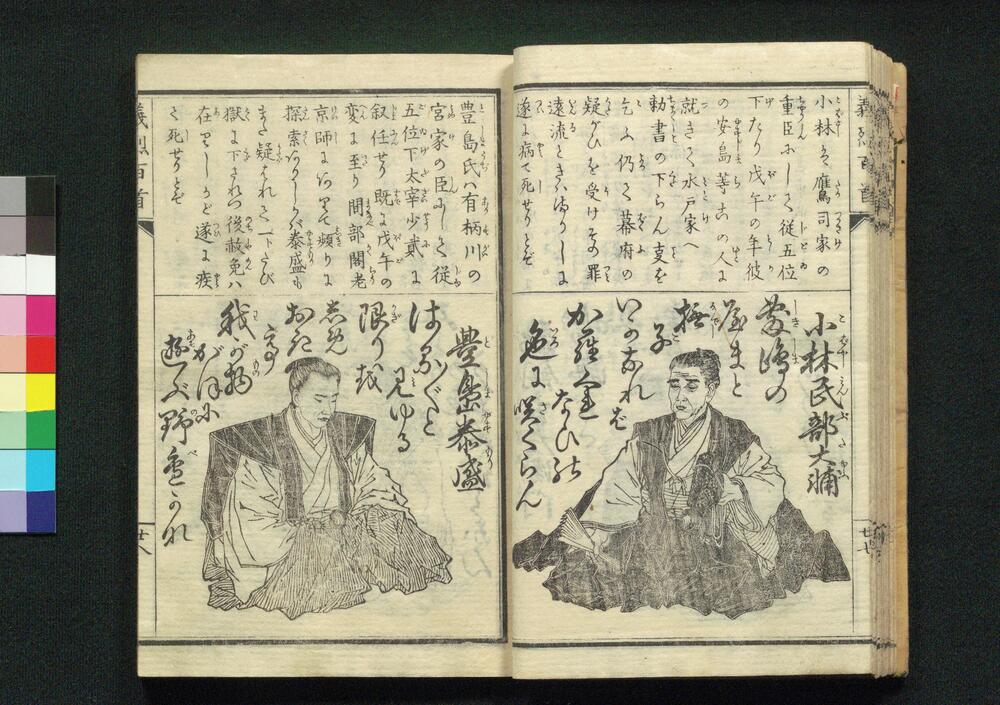 義烈百首
小林は鷹司家の
重臣にして従五位
下たり戊午の年彼
の安島等この人に
就きて水戸家へ
勅書の下らん事を
乞ふ仍て幕府の
疑がひを受けその罪
遠流ときはまりしに
遂に病て死せりとぞ
小林民部大輔
敷嶋の
屋まと
撫
子
いかなれば
から
なひ
色に咲くらん
廿七
豊島氏ハ有栖川の
宮家の臣にして従
五位下太宰少貳に
叙任せり既に戊午の
変に至り間部閣老
京師に
探索ありしかバ泰盛も
また疑はれて一トたび
獄に下されつ後赦免ハ
在りしかど遂に疾
て死せりとぞ
豊島泰盛
はるばると
見ゆる
限りは
我が物
がほに
遊ぶ野
廿八
義烈百首